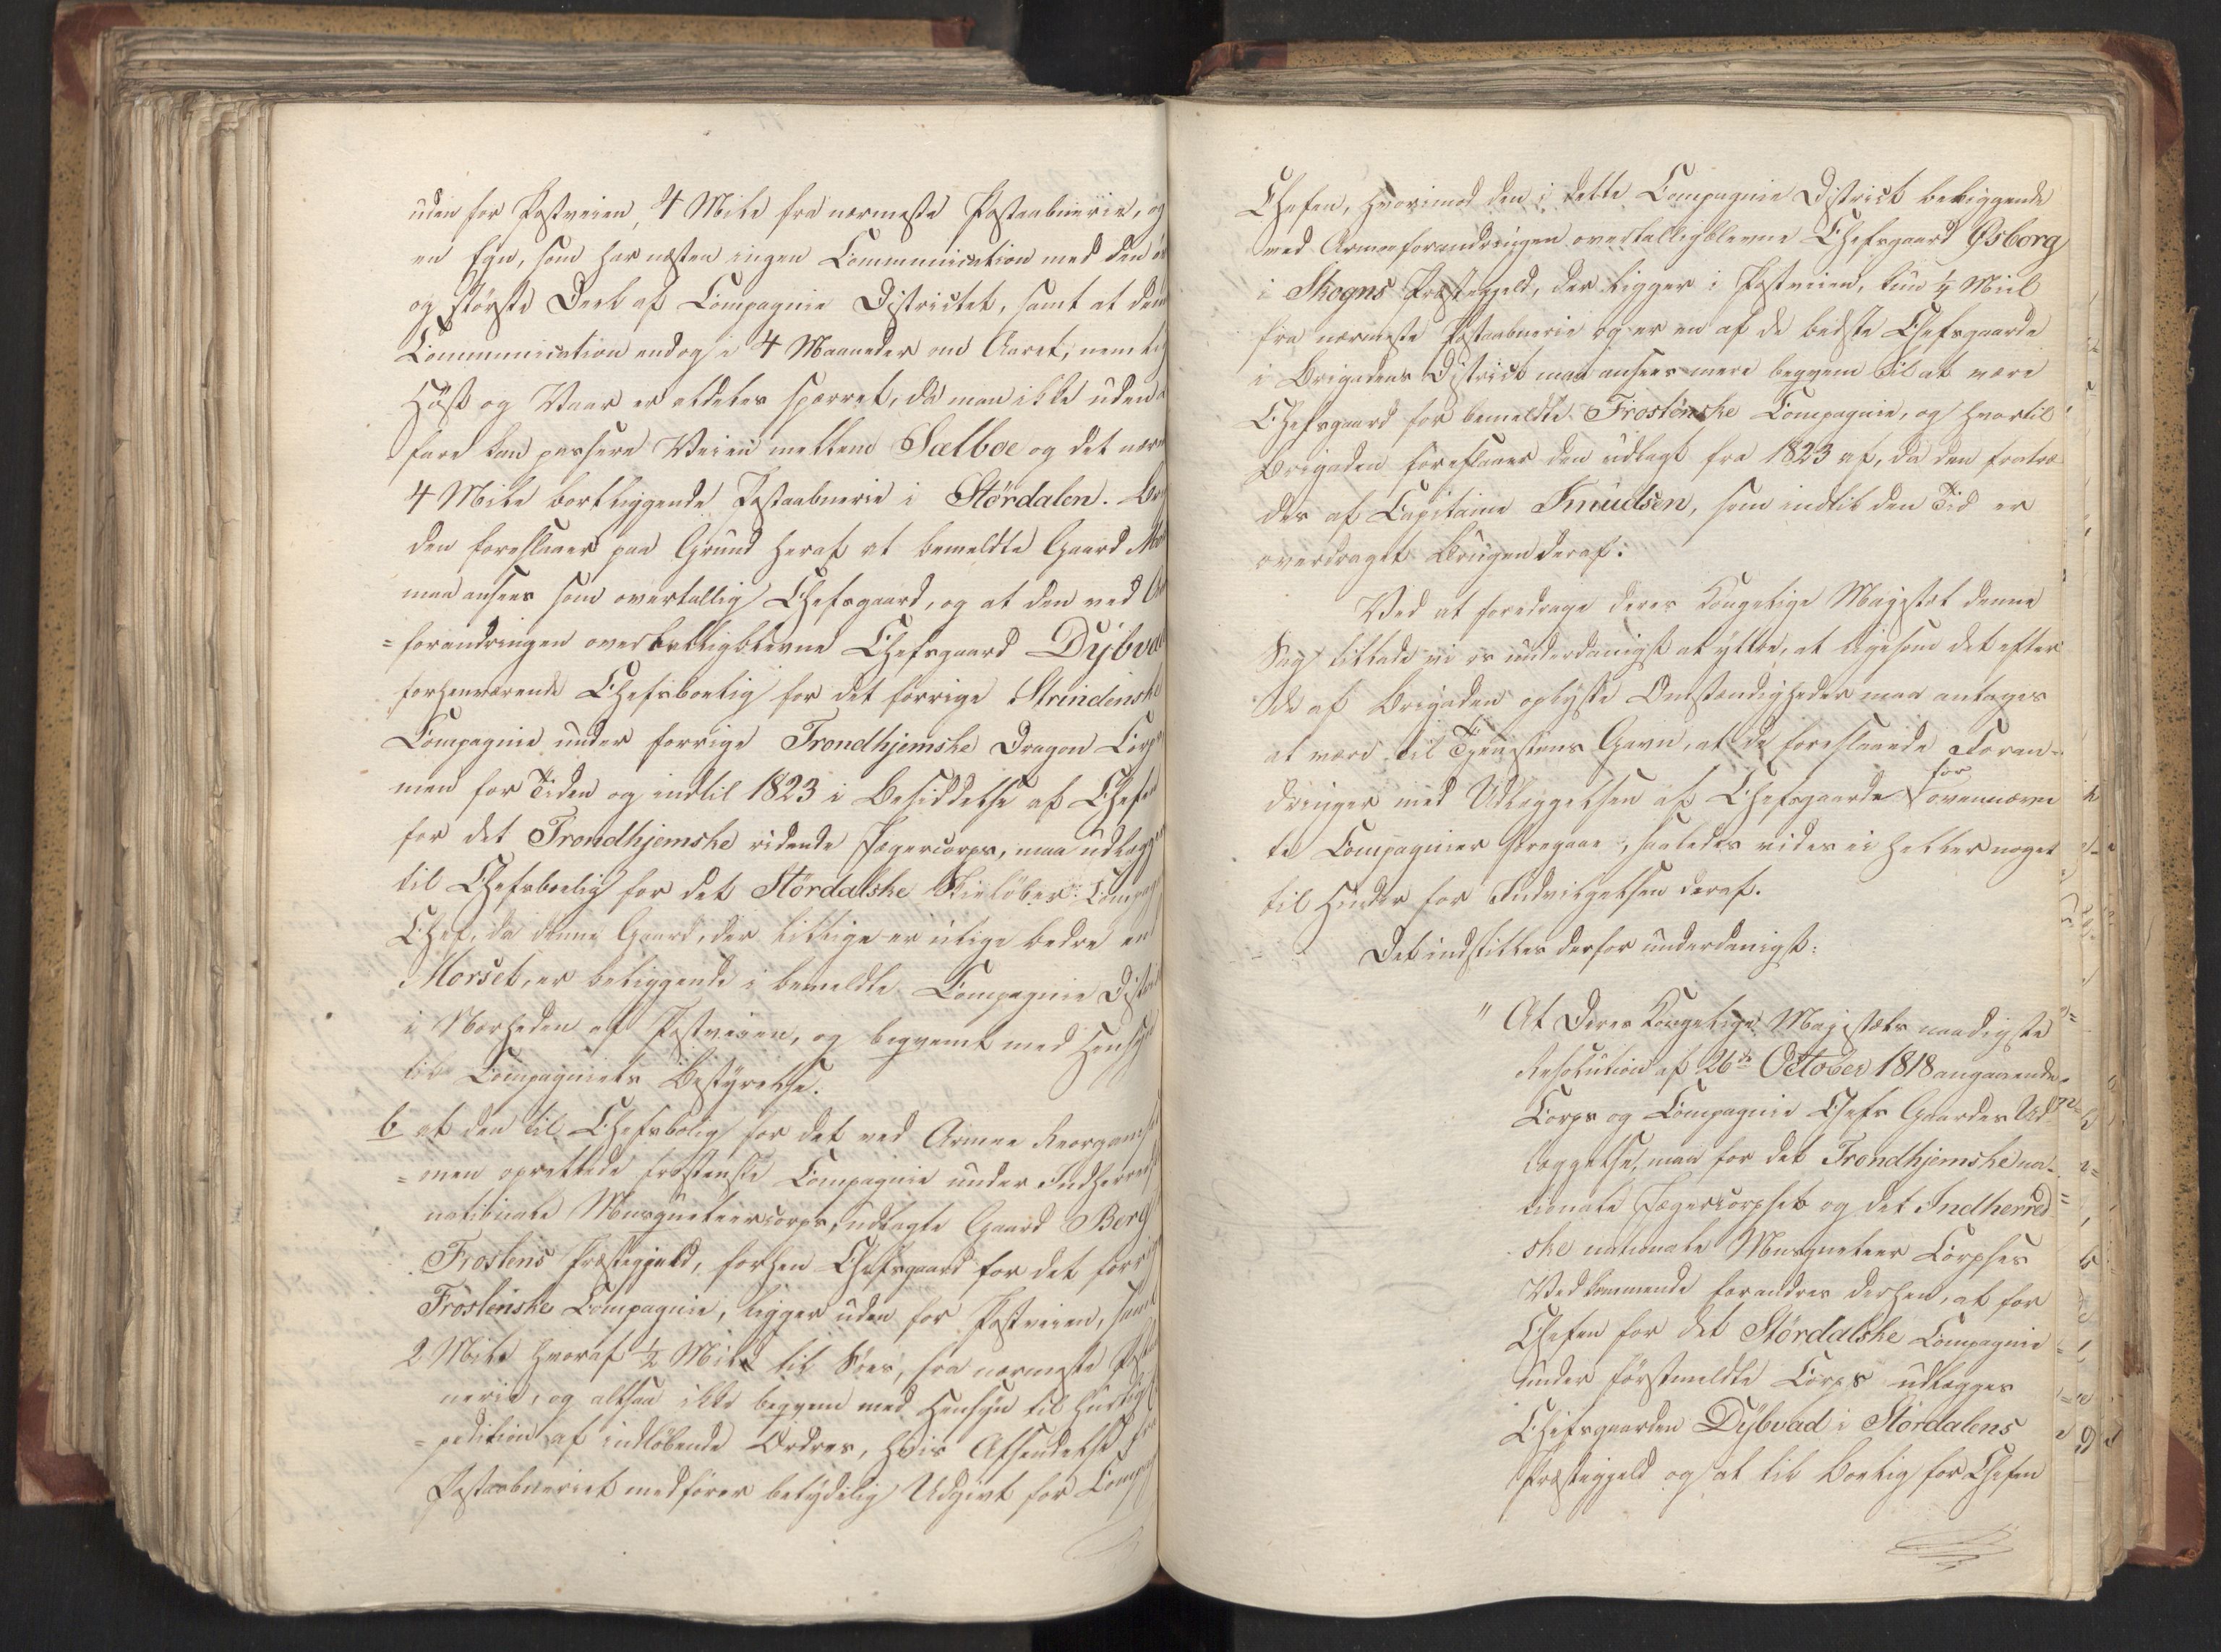 uden for Postveien, 4 Mile fra nærmeste Postaabnerie, og
en Egn, som har næsten ingen Communication med den
og störste Deel af Compagnie Districtet, samt at den
Communication endog i 4 Maaneder om Aaret, nemlig
Höst og Vaar er aldeles spærret, da man ikke uden
fare kan passere Veien mellem Sælboe og det nær
4 Mile bortliggende Postaabnerie i Stördalen. Bri
den foreslaaer paa Grund heraf at bemeldte Gaard Mor
maa ansees som overtallig Chefsgaard, og at den ved Ar
=forandringen overtalligblevne Chefsgaard Dybvad
forhenværende Chefsboelig for det forrige Strindenske
Compagnie under forrige Trondhjemske Dragon Corps
men for Tiden og indtil 1823 i Besiddelse af Chefen
for det Trondhjemske ridende Jægercorps, maa udlægges
til Chefsboelig for det Stördalske Skielöber-Compagnie
Chef, da denne Gaard, der tillige er utige bedre end
Morset, er beliggende i bemeldte Compagnie District
i Nærheden af Postveien, og beqvemt med Hensyn
til Compagniets Bestyrelse.
b at den til Chefsbolig for det ved Armee Reorganisa
=onen oprettede frostenske Compagnie under Indherreds
nationale Musqueteercorps, udlagte Gaard Berg
Frostens Præstegjeld, forhen Chefsgaard for det forrige
Frostenske Compagnie, ligger uden for Postveien, samt
2 Mile hvoraf 1/2 Miil til Söes, fra nærmeste Postaab
nerie, og altsaa ikke beqvem med Hensyn til hurtig
=pedition af indlöbende Ordres, hvis Afsendelse fra
Postaabneriet medförer betydelig Udgivt for Compag
Chefen, hvorimod den i dette Compagnie District beliggende
ved Armeeforandringen overtalligblevne Chefsgaard Ysborg
i Skogns Præstegjeld, der ligger i Postveien, kun 1/4 Miil
fra nærmeste Postaabnerie og er en af de bedste Chefsgaarde
i Brigadens District maa ansees mere beqvem til at være
Chefsgaard for bemeldte Frostenske Compagnie, og hvortil
Brigaden foreslaaer den udlagt fra 1823 af, da den fratræ
des af Capitaine Knudsen, som indtil den Tid er
overdraget Brugen deraf.
Ved at foredrage Deres Kongelige Majestæt denne
Sag tillade vi os underdanigst at yttre, at ligesom det efter
de af Brigaden oplyste Omstændigheder maa antages
at være til Tjenestens Gavn, at de foreslaaede Foran-
dringer med Udlæggelsen af Chefsgaarde for ovennævn
te Compagnier foregaae, saaledes vides ei heller noget
til Hinder for Indvilgelsen deraf.
Det indstilles derfor underdanigst:
" At Deres Kongelige Majestæts naadigste
Resolution af 26de October 1818 angaaende
Corps og Compagnie Chefs Gaardes Ud-
læggelse, maa for det Trondhjemske na-
tionale Jægercorpset og det Indherred-
ske nationale Musqueteer Corpses
Vedkommende forandres derhen, at for
Chefen for det Stördalske Compagnie
under förstmeldte Corps udlægges
Chefsgaarden Dybvad i Stördalens
Præstegjeld og at til Boelig for Chefen